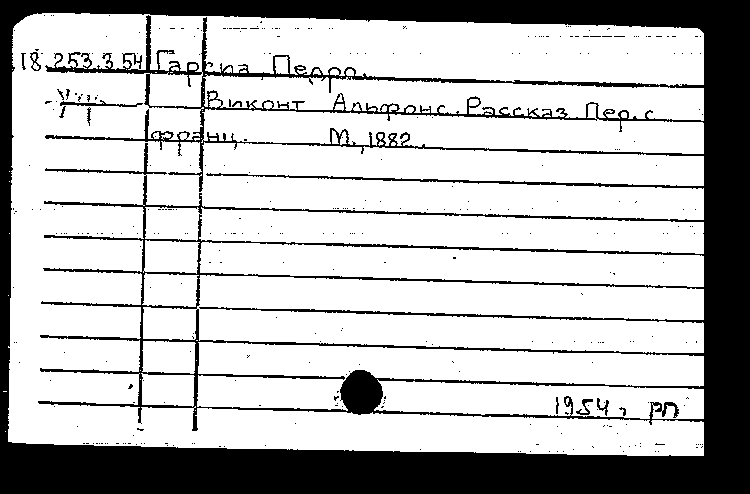 18.253.3.54 Гарсиа, Педро.
Виконт Альфонс. Рассказ. Пер. с
франц. М., 1882.
1954, рп